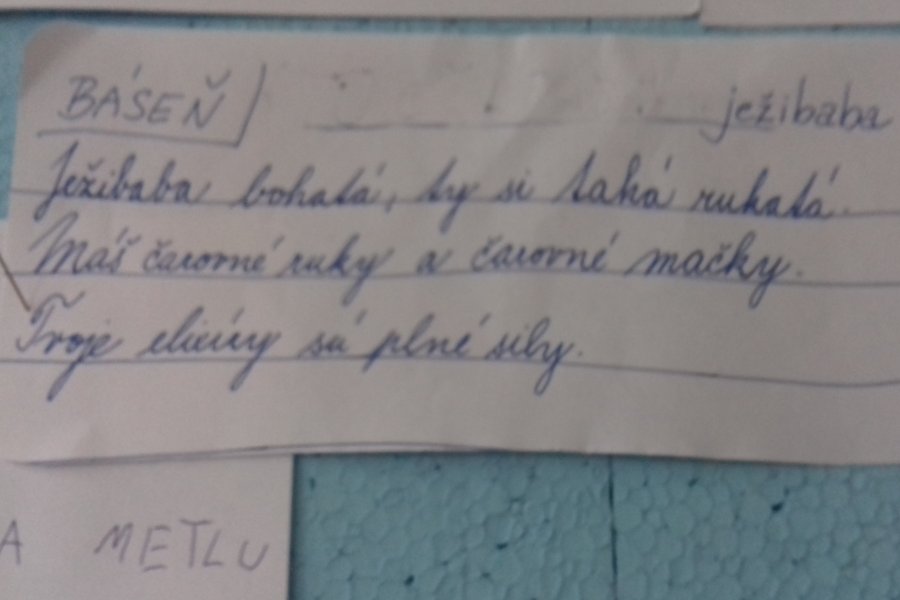 BÁSEŇ ježibaba
Ježibaba bohatá, ty si taká rukatá.
Máš čarovné ruky a čarovné mačky.
Tvoje elixíry sú plné sily.
A METLU